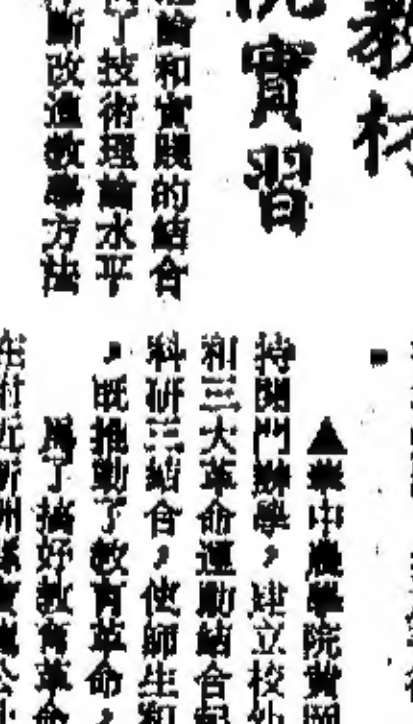 教材
院實習
論和實踐的結合
了技術理論水平
斷改進教學方法
▲華中農學院黃岡
持開門辦學，建立校外
和三大革命運動結合起
科研三結合，使師生和
，既推動了教育革命，
爲了搞好教育革命
在附近新州縣